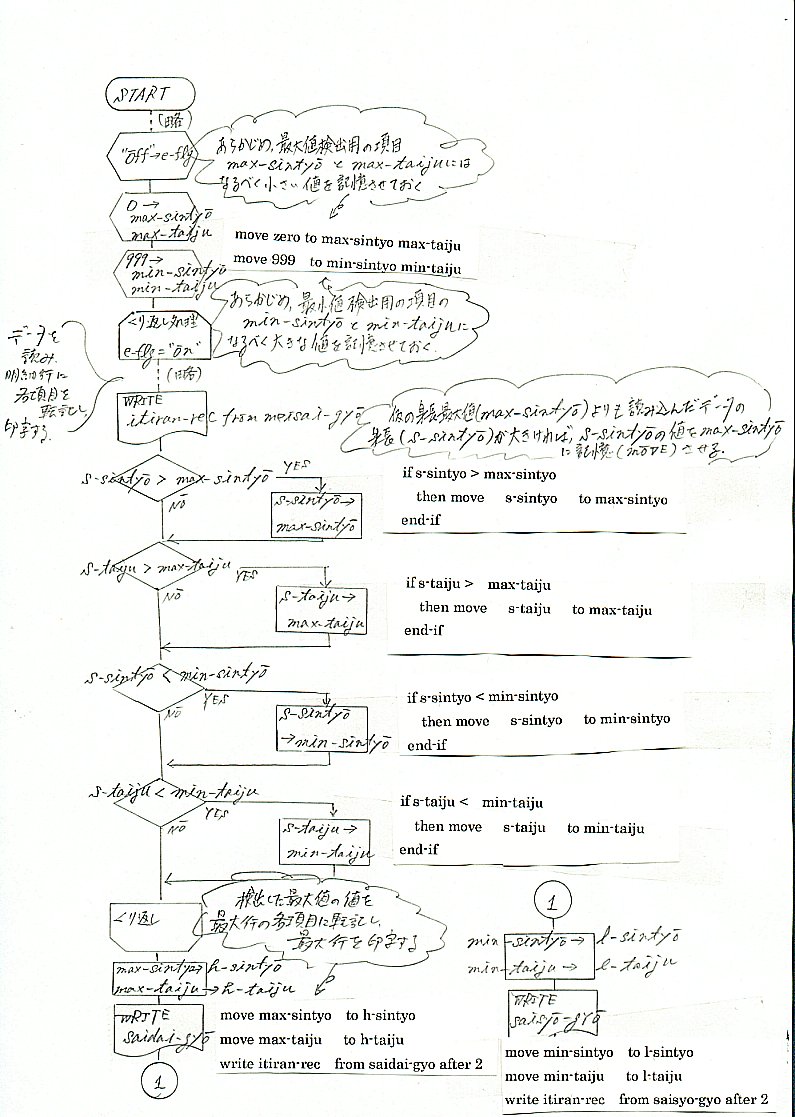 START
(略)
"ōff"→e-flg
あらかじめ,最大値検出用の項目
max-sintyō と max-taijuには
なるべく小さい値を記憶させておく
0→
max-sintyō
max-taiju
move zero to max-sintyo max-taiju
move 999 to min-sintyo min-taiju
999→
min-sintyō
min-taiju
あらかじめ,最小値検出用の項目の
min-sintyōとmin-taijuに
なるべく大きな値を記憶させておく.
くり返し処理
e-flg="ōn"
(略)
データを
読み,
明細行に
各項目を
転記し
印字する.
WRITE
itiran-rec from meisai-gyō
仮の身長最大値(max-sintyō)よりも読み込んだデータの
身長(s-sintyō)が大きければ, s-sintyōの値をmax-sintyō
に記憶(mōVE)させる.
s-sintyō > max-sintyō
YES
NŌ
s-sintyō→
max-sintyō
if s-sintyo > max-sintyo
then move s-sintyo to max-sintyo
end-if
s-taiju > max-taiju
YES
NŌ
s-taiju→
max-taiju
if s-taiju > max-taiju
then move s-taiju to max-taiju
end-if
s-sintyō < min-sintyō
YES
NŌ
s-sintyō
→min-sintyō
if s-sintyo < min-sintyo
then move s-sintyo to min-sintyo
end-if
s-taiju < min-taiju
YES
NŌ
s-taiju→
min-taiju
if s-taiju < min-taiju
then move s-taiju to min-taiju
end-if
くり返し
検出した最大値の値を
最大行の各項目に転記し,
最大行を印字する
max-sintyō→h-sintyō
max-taiju→h-taiju
WRITE
saidai-gyō
1
move max-sintyo to h-sintyo
move max-taiju to h-taiju
write itiran-rec from saidai-gyo after 2
1
min-sintyō→ l-sintyō
min-taiju→ l-taiju
WRITE
saisyō-gyō
move min-sintyo to l-sintyo
move min-taiju to l-taiju
write itiran-rec from saisyo-gyo after 2